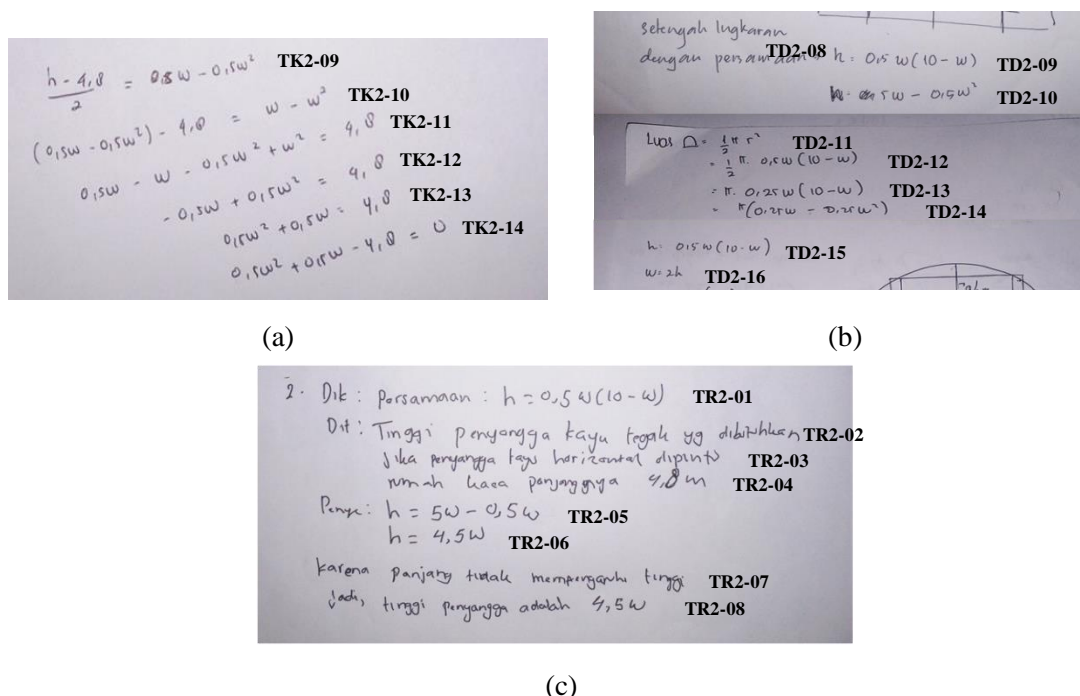 h - 4,8 / 2 = 0,5w - 0,5w² TK2-09
(0,5w - 0,5w²) - 4,8 = w - w² TK2-10
0,5w - w - 0,5w² + w² = 4,8 TK2-11
- 0,5w + 0,5w² = 4,8 TK2-12
0,5w² + 0,5w = 4,8 TK2-13
0,5w² + 0,5w - 4,8 = 0 TK2-14
(a)
setengah lingkaran
dengan persamaan TD2-08 h = 0,5 w (10 - w) TD2-09
5w - 0,5w² TD2-10
Luas = ½ π r² TD2-11
= ½ π. 0,5w (10 - w) TD2-12
= π. 0,25 w (10 - w) TD2-13
= π (0,25w - 0,25w²) TD2-14
h = 0,5 w (10 - w) TD2-15
w = 2h TD2-16
(b)
2. Dik : persamaan : h = 0,5 w (10 - w) TR2-01
Dit : Tinggi penyangga kayu tegak yg dibutuhkan TR2-02
jika penyangga kayu horizontal dipintu TR2-03
rumah kaca panjangnya 4,8 m TR2-04
Penye : h = 5w - 0,5w TR2-05
h = 4,5w TR2-06
karena panjang tidak mempengaruhi tinggi TR2-07
jadi, tinggi penyangga adalah 4,5w TR2-08
(c)